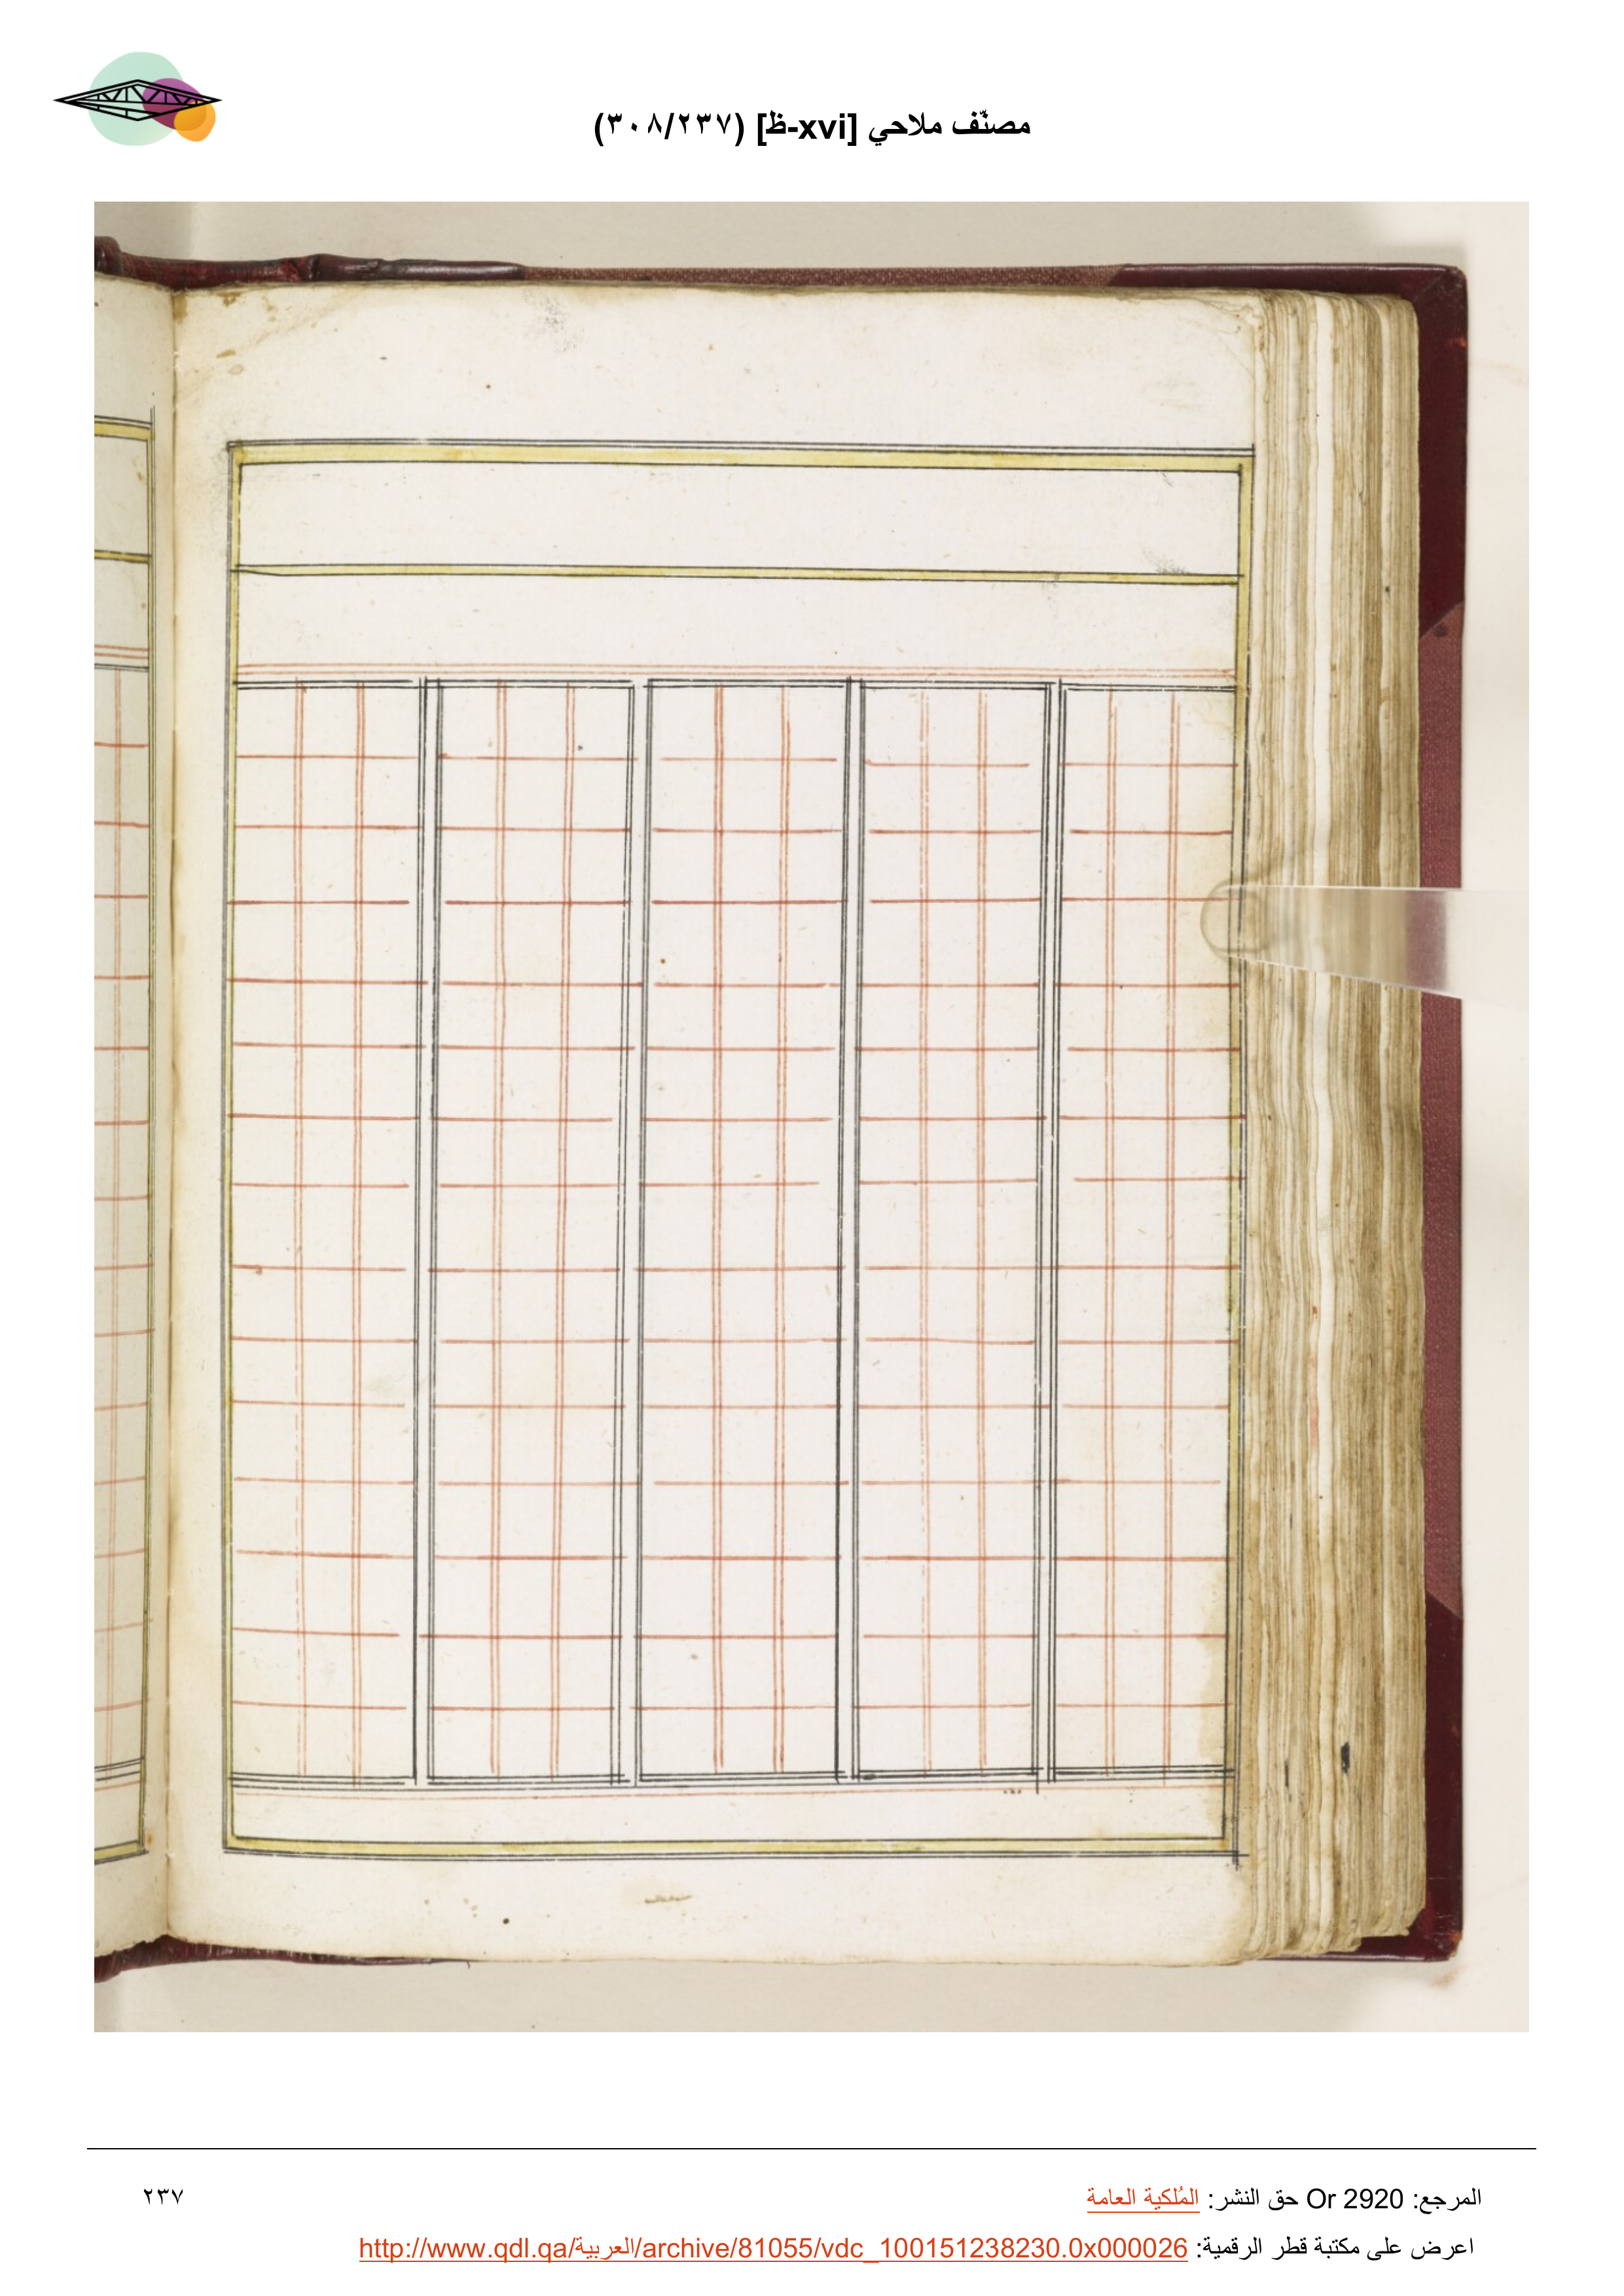 مصنّف ملاحي [xvi-ظ] (٢٣٧/٣٠٨)
المرجع: Or 2920 حق النشر: المُلكية العامة
٢٣٧
اعرض على مكتبة قطر الرقمية: http://www.qdl.qa/العربية/archive/81055/vdc_100151238230.0x000026